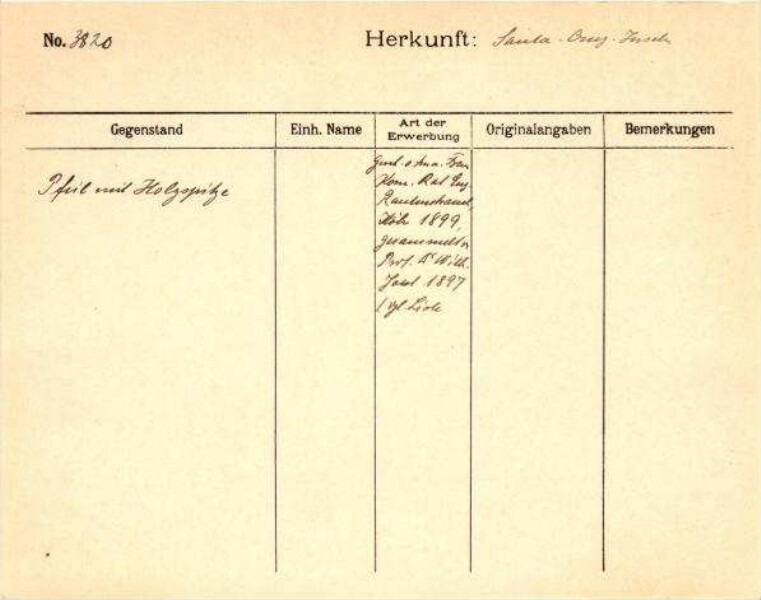 No. 3820
Herkunft: Santa-Cruz-Inseln
Gegenstand
Einh. Name
Art der Erwerbung
Originalangaben
Bemerkungen
Pfeil mit Holzspitze
Frau
Kom. Rat Eug.
Rautenstrauch,
Köln 1899,
gesammelt v.
Prof. Dr Wilh.
Joest 1897
(vgl. Liste